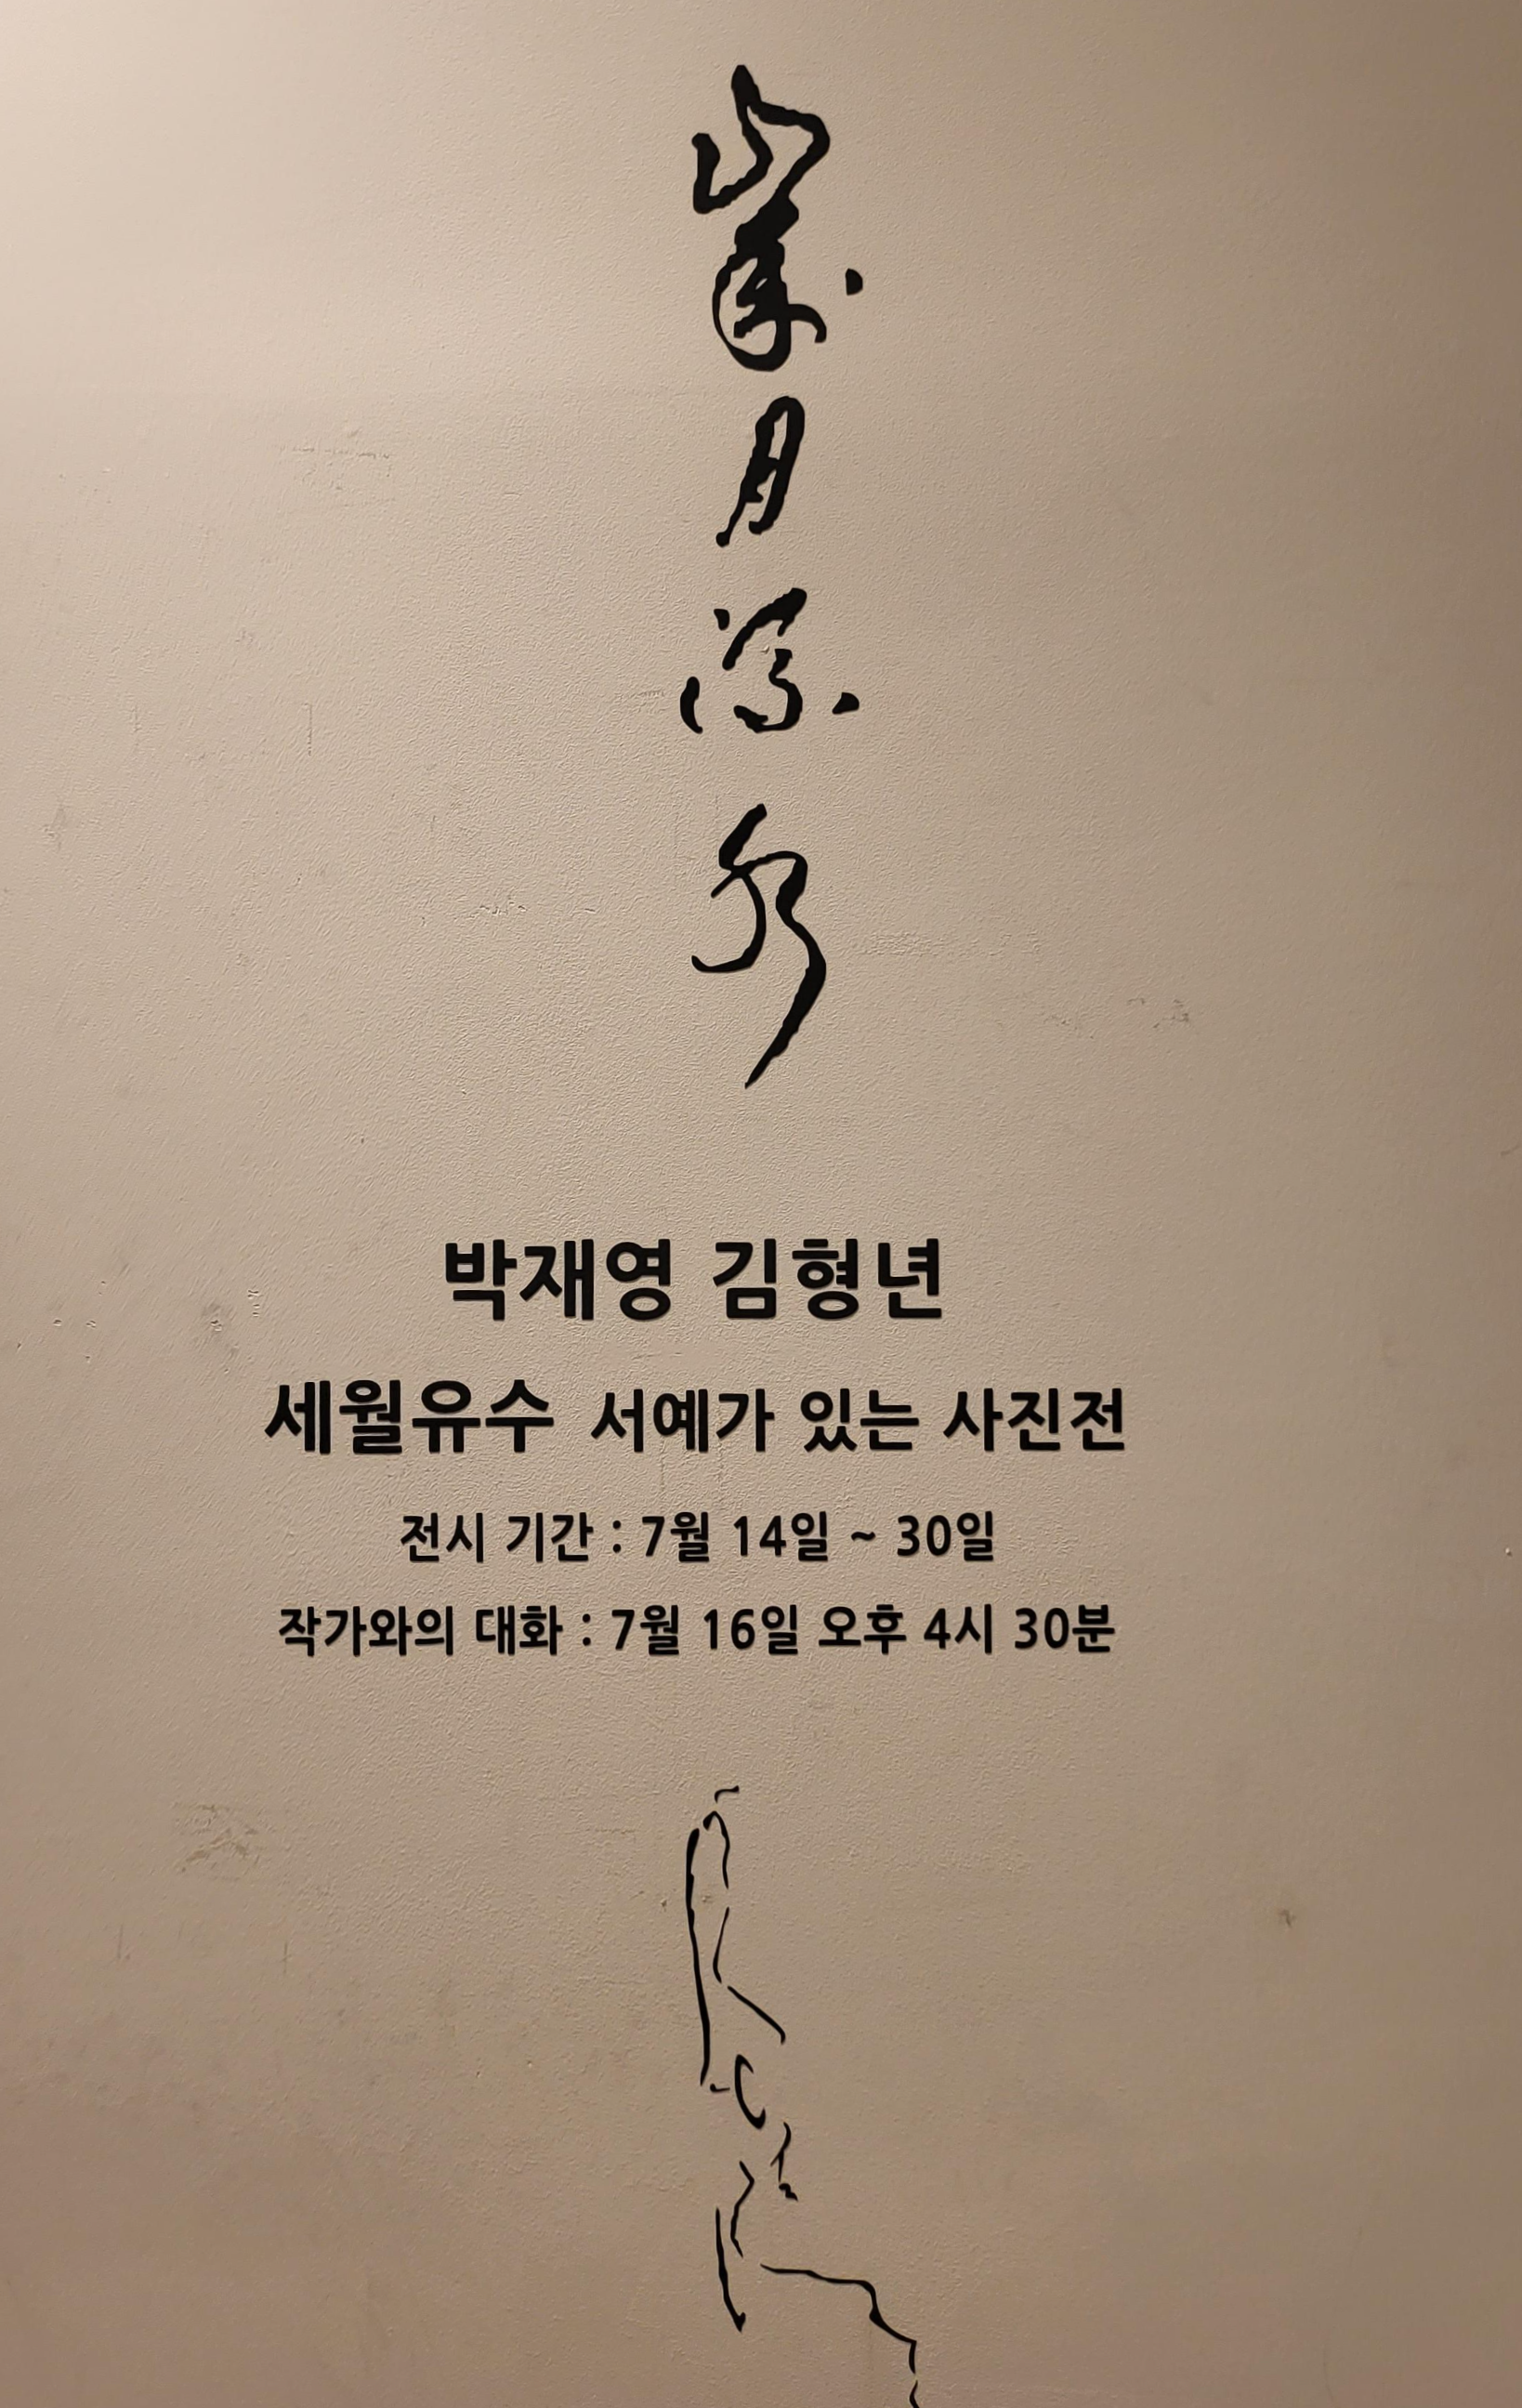 歲月流水
박재영 김형년
세월유수 서예가 있는 사진전
전시 기간 : 7월 14일 ~ 30일
작가와의 대화 : 7월 16일 오후 4시 30분